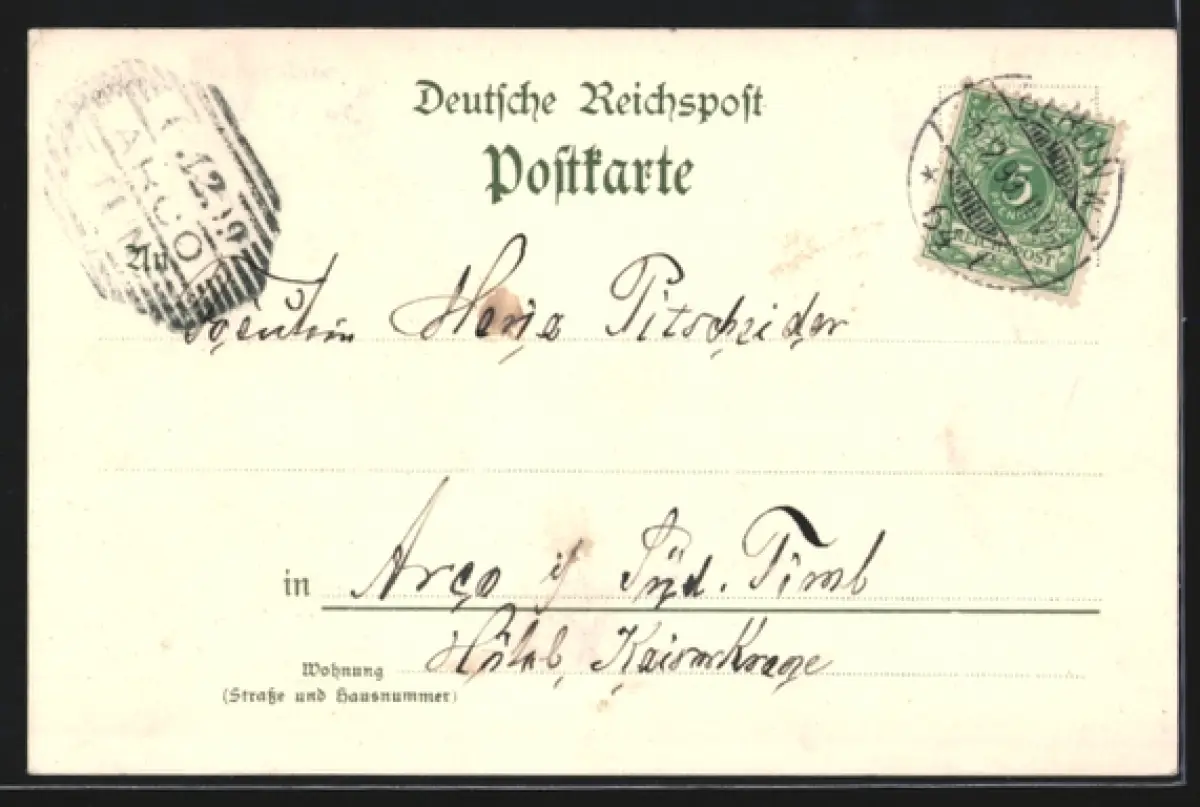 Deutsche Reichspost
Postkarte
ARCO
12 99
5
PFENNIG
REICHSPOST
An
Fräulein Maria Pitscheider
in Arco i/ Süd. Tirol
Hôtel Kaiserkrone
Wohnung
(Straße und Hausnummer)